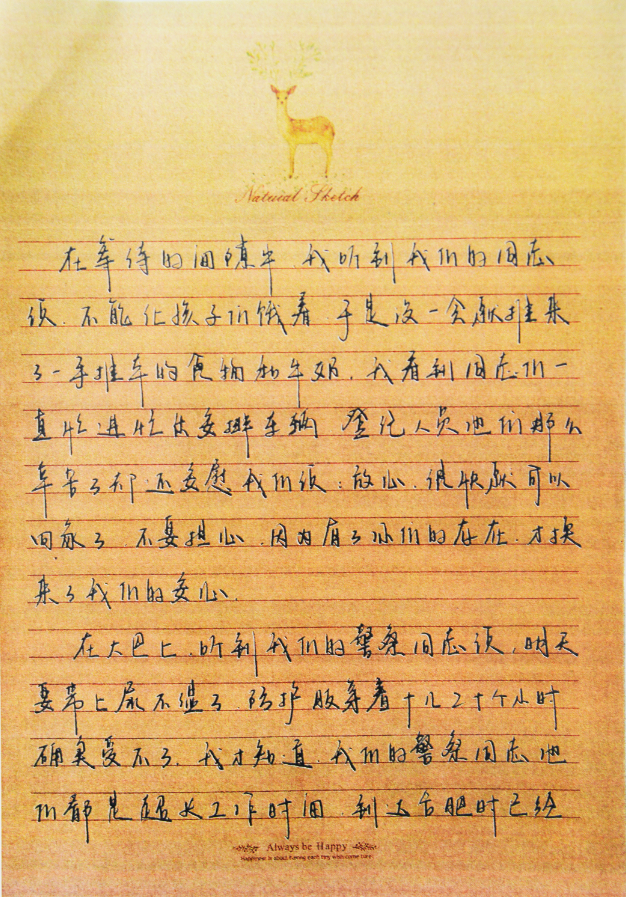 Natural Sketch
在等待的间隙中,我听到我们的同志
说.不能让孩子们饿着.于是没一会就推来
了一手推车的食物和牛奶.我看到同志们一
直忙进忙出安排车辆 登记人员他们那么
辛苦了却还安慰我们说:放心.很快就可以
回家了.不要担心.因为有了你们的存在.才换
来了我们的安心.
在大巴上.听到我们的警察同志说,明天
要带上尿不湿了 防护服穿着十几二十个小时
确实受不了.我才知道.我们的警察同志他
们都是超长工作时间 到达合肥时已经
Always be Happy
Happiness is about having each tiny wish come true